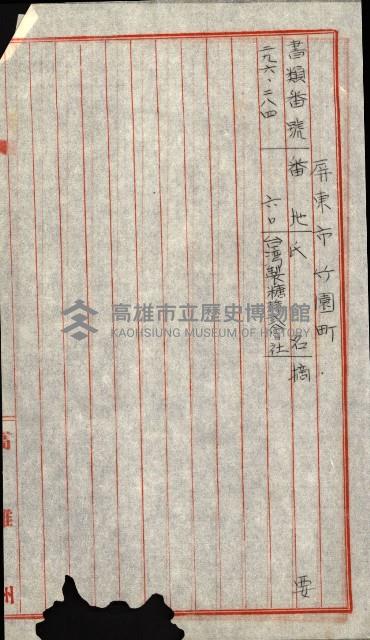 屏東市竹園町.
書類番號 番地 氏名 摘要
二九六・二八四 六〇 台湾製糖株式會社
高雄州
高雄市立歷史博物館
KAOHSIUNG MUSEUM OF HISTORY